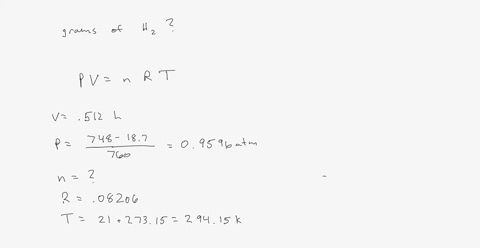 grams of H₂ ?
PV = n R T
V = .512 L
P = 748 - 18.7 / 760 = 0.9596 atm
n = ?
R = .08206
T = 21 + 273.15 = 294.15 K